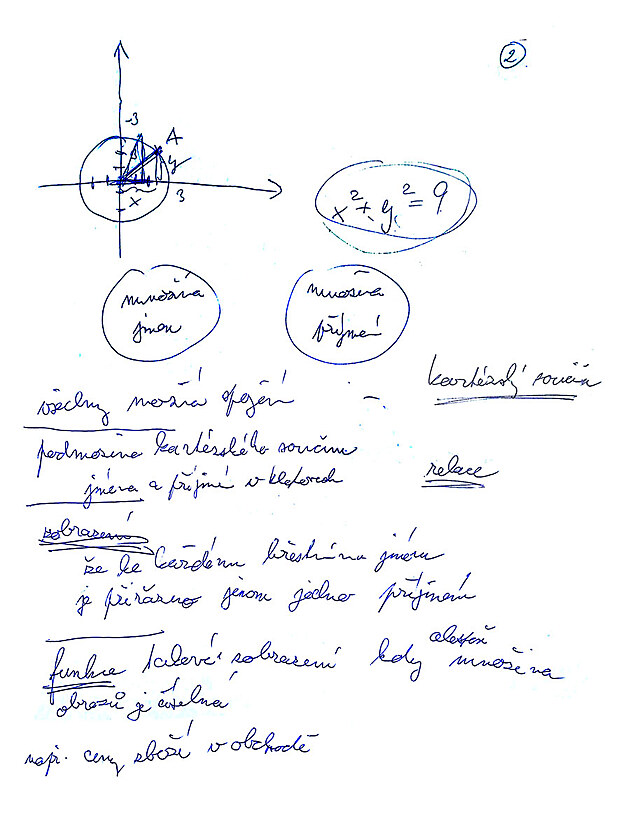 2
3
A
y
x
3
x² + y² = 9
množina
jmen
množina
příjmení
všechny možná spojení – kartézský součin
podmnožina kartézského součinu
jména a příjmení v relace
zobrazení
že ke každému křestnímu jménu
je přiřazeno jenom jedno příjmení
funkce takové zobrazení kdy alespoň množina
obrazů je číselná
např. ceny zboží v obchodě